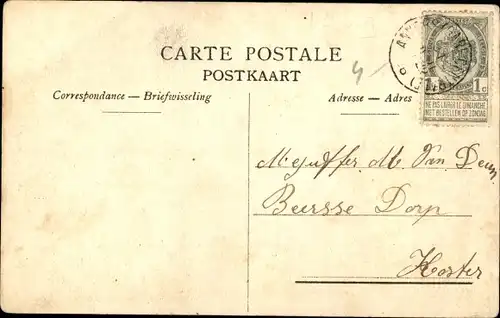 CARTE POSTALE
POSTKAART
Correspondance — Briefwisseling
Adresse — Adres
1 1c
NE PAS LIVRER LE DIMANCHE
NIET BESTELLEN OP ZONDAG
Mejuffer M. Van Deun
Beersse Dorp
Koster